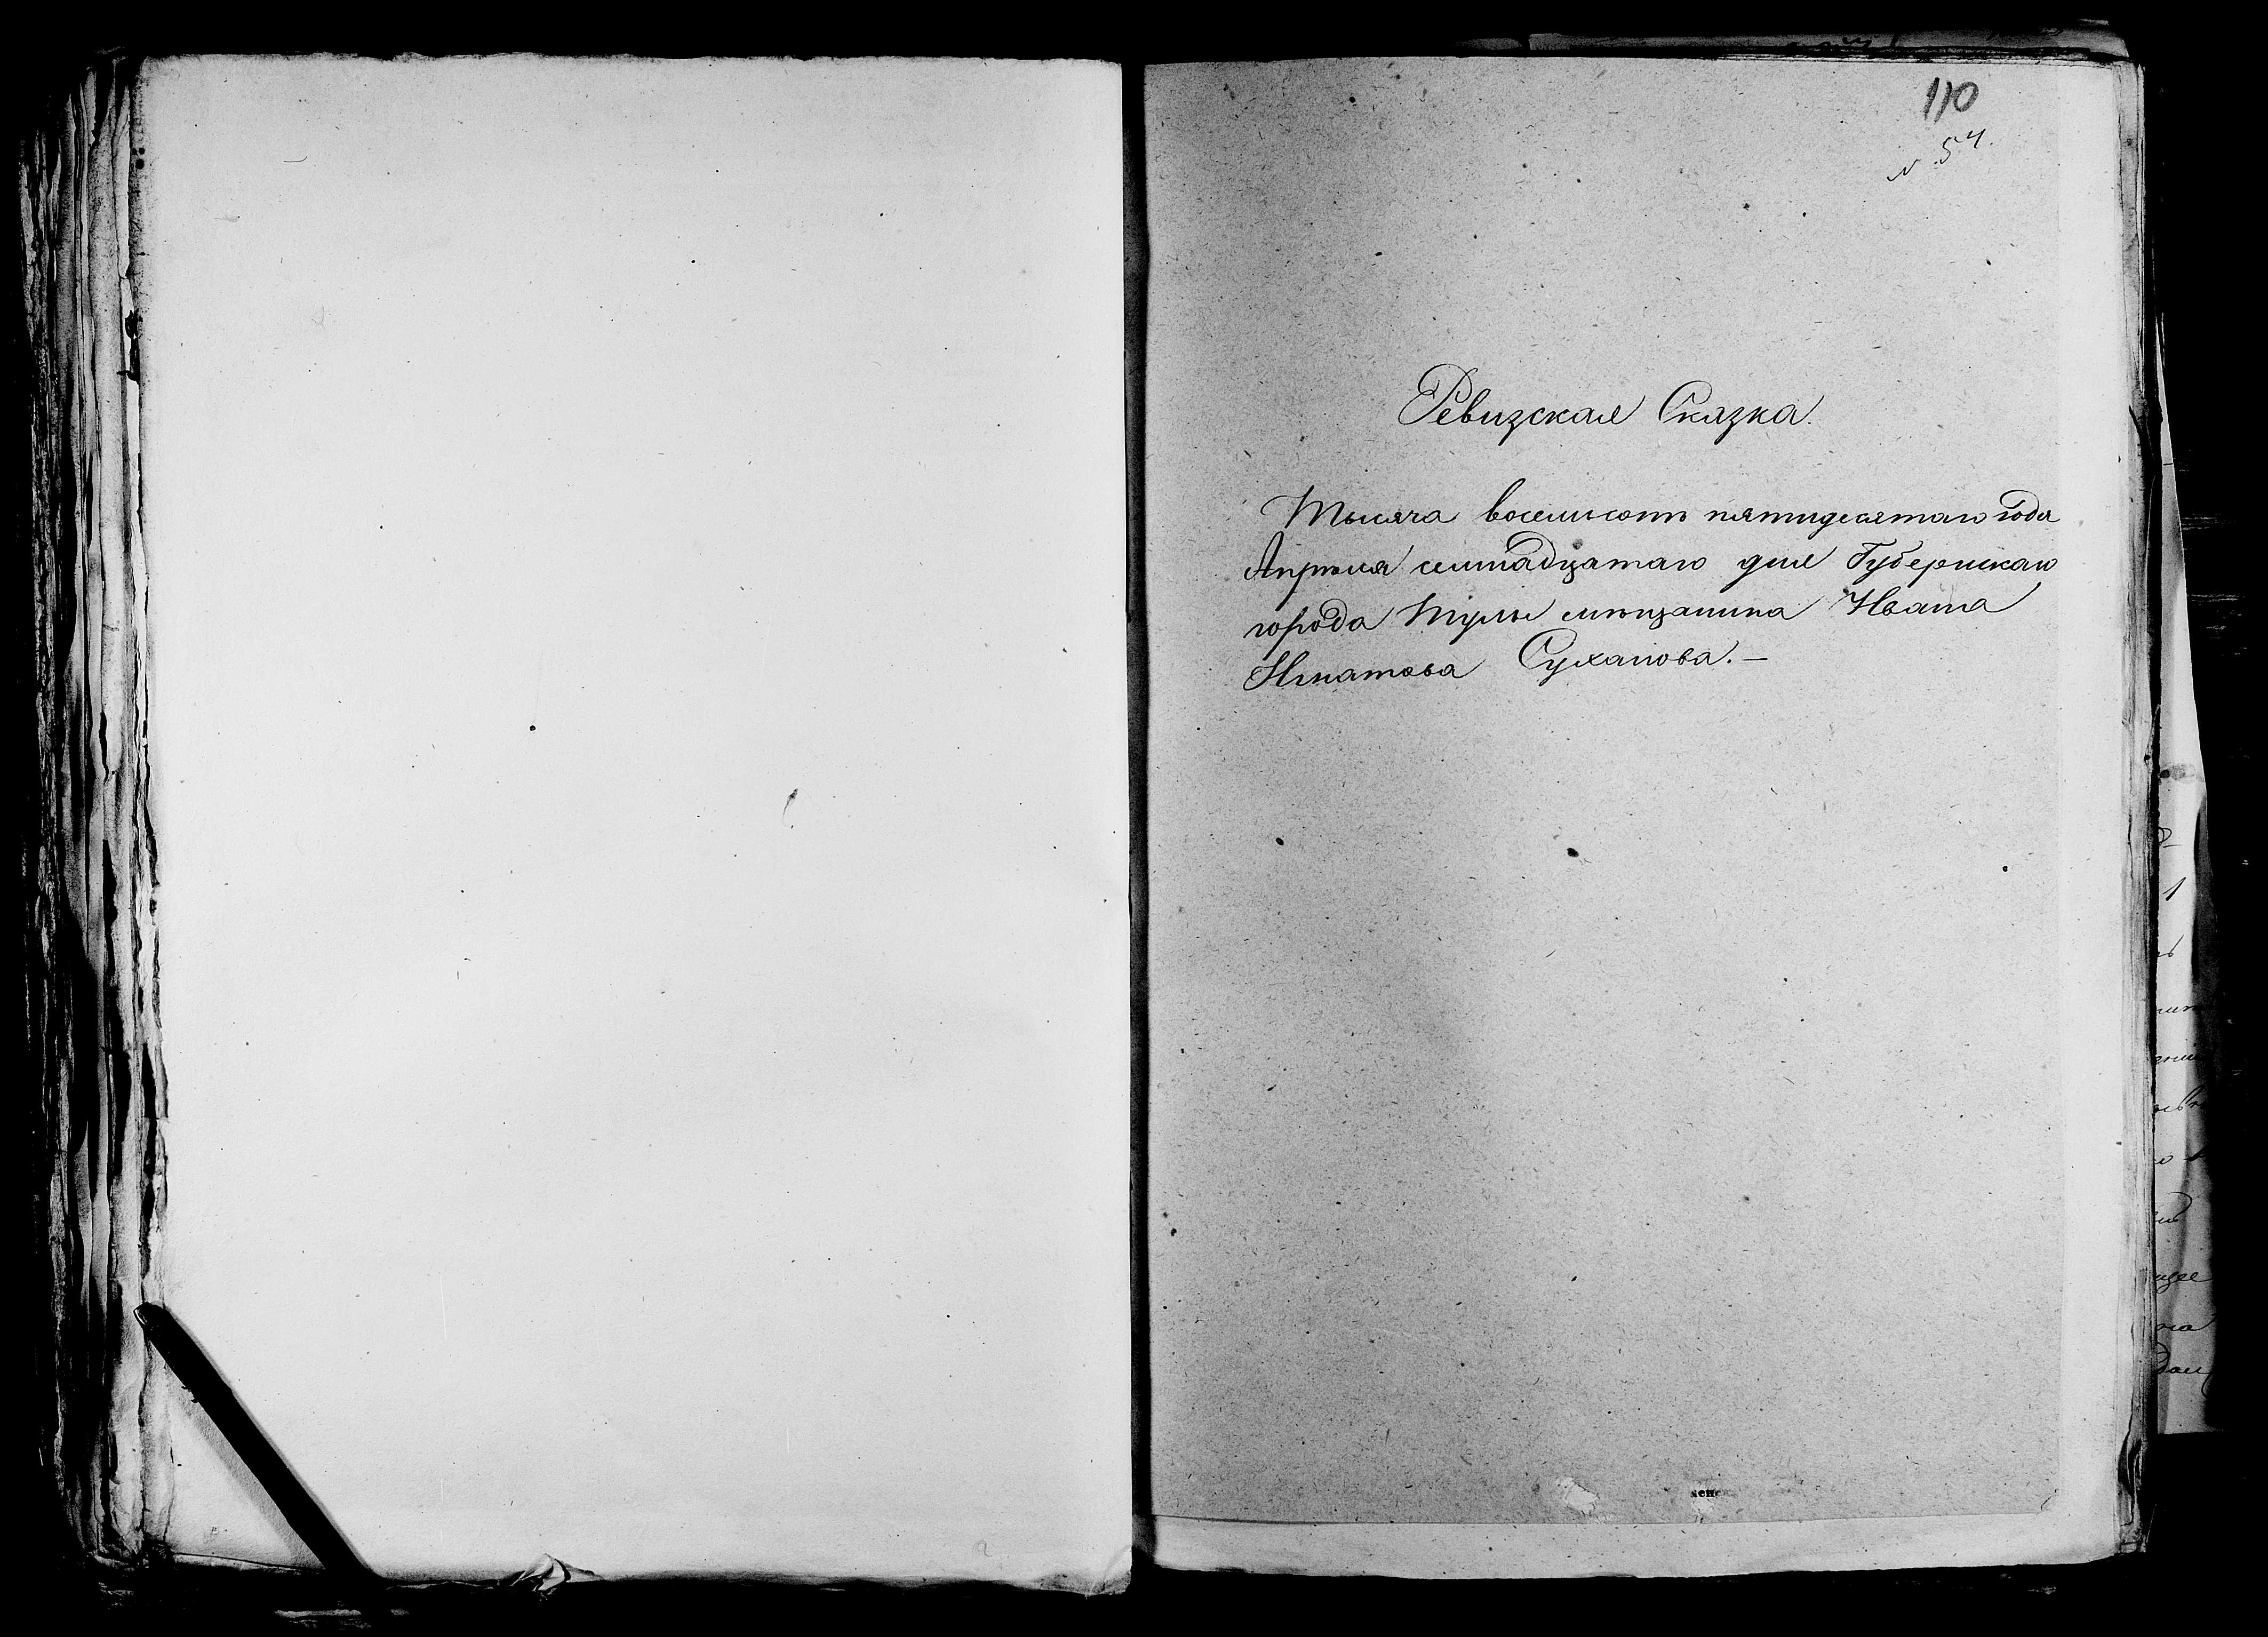 110
№ 54.
Ревизская Сказка.
Тысяча восемьсотъ пятидесятаго года
Апрѣля семнадцатаго дня Губернскаго
города Тулы мѣщанина Ивана
Игнатова Суханова. —